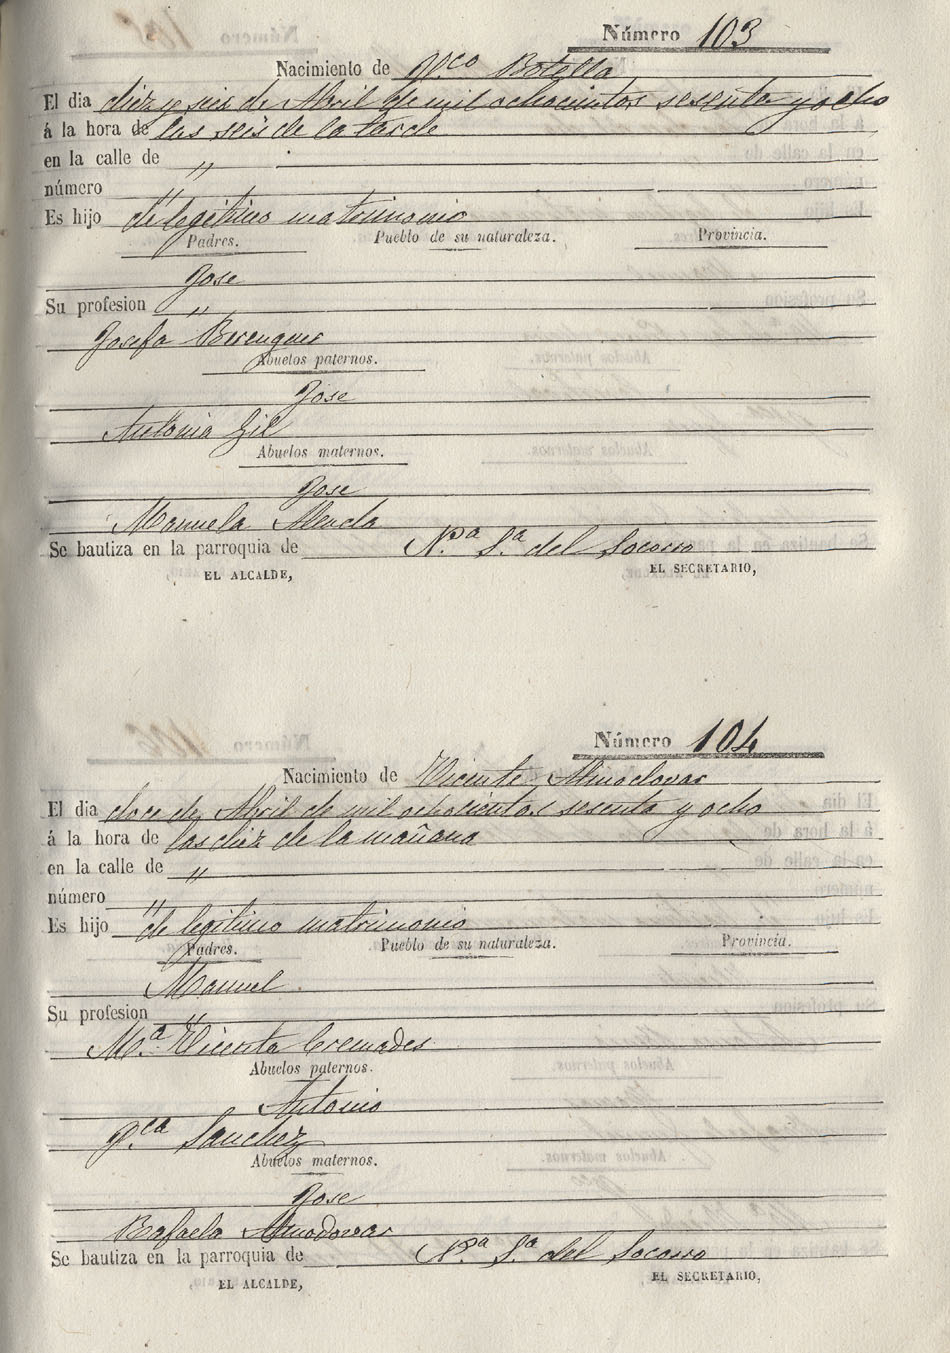 Número 103
Nacimiento de Fco Botella
El dia diez y seis de Abril de mil ochocientos sesenta y ocho
á la hora de las seis de la tarde
en la calle de "
número "
Es hijo de legitimo matrimonio
Padres. Pueblo de su naturaleza. Provincia.
Jose
Su profesion "
Josefa Berenguer
Abuelos paternos.
Jose
Antonia Gil
Abuelos maternos.
Jose
Manuela Alenda
Se bautiza en la parroquia de N.ª S.ª del Socorro
EL ALCALDE, EL SECRETARIO,
Número 104
Nacimiento de Vicente Almodovar
El dia doce de Abril de mil ochocientos sesenta y ocho
á la hora de las diez de la mañana
en la calle de "
número "
Es hijo de legitimo matrimonio
Padres. Pueblo de su naturaleza. Provincia.
Manuel
Su profesion "
M.ª Vicenta Cremades
Abuelos paternos.
Antonio
F.ca Sanchez
Abuelos maternos.
Jose
Rafaela Almodovar
Se bautiza en la parroquia de N.ª S.ª del Socorro
EL ALCALDE, EL SECRETARIO,